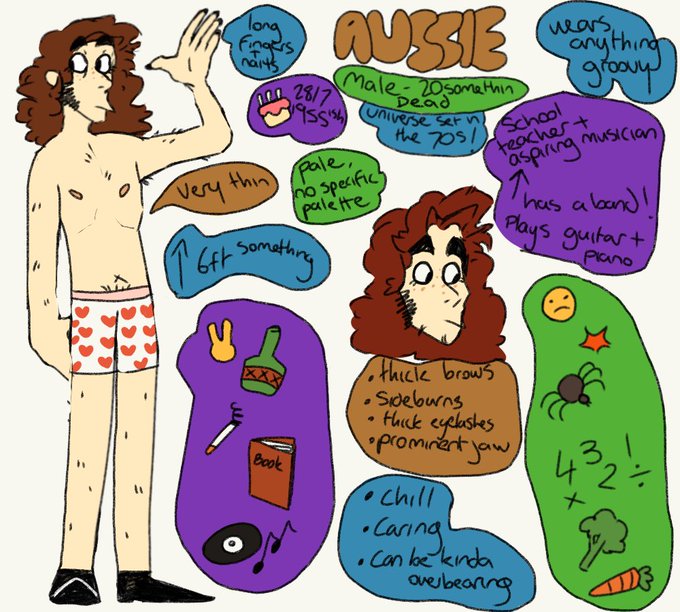 AUSSIE
long
fingers
+
nails
28/7
1955ish
Male - 20somethin
Dead
universe set in
the 70s!
wears
anything
groovy
school
teacher +
aspiring musician
↑
has a band!
Plays guitar +
piano
very thin
pale,
no specific
palette
↑ 6ft something
• thick brows
• sideburns
• thick eyelashes
• prominent jaw
XXX
Book
• chill
• caring
• can be kinda
overbearing
4 3 2 1 ÷
×